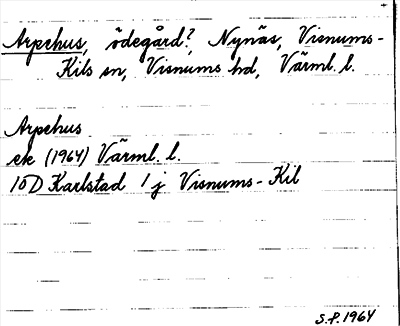 Arpehus, ödegård?, Nynäs, Visnums-
Kils sn, Visnums hd, Värml. l.
Arpehus
ek (1964) Värml. l.
10D Karlstad 1j Visnums-Kil
S.P. 1964